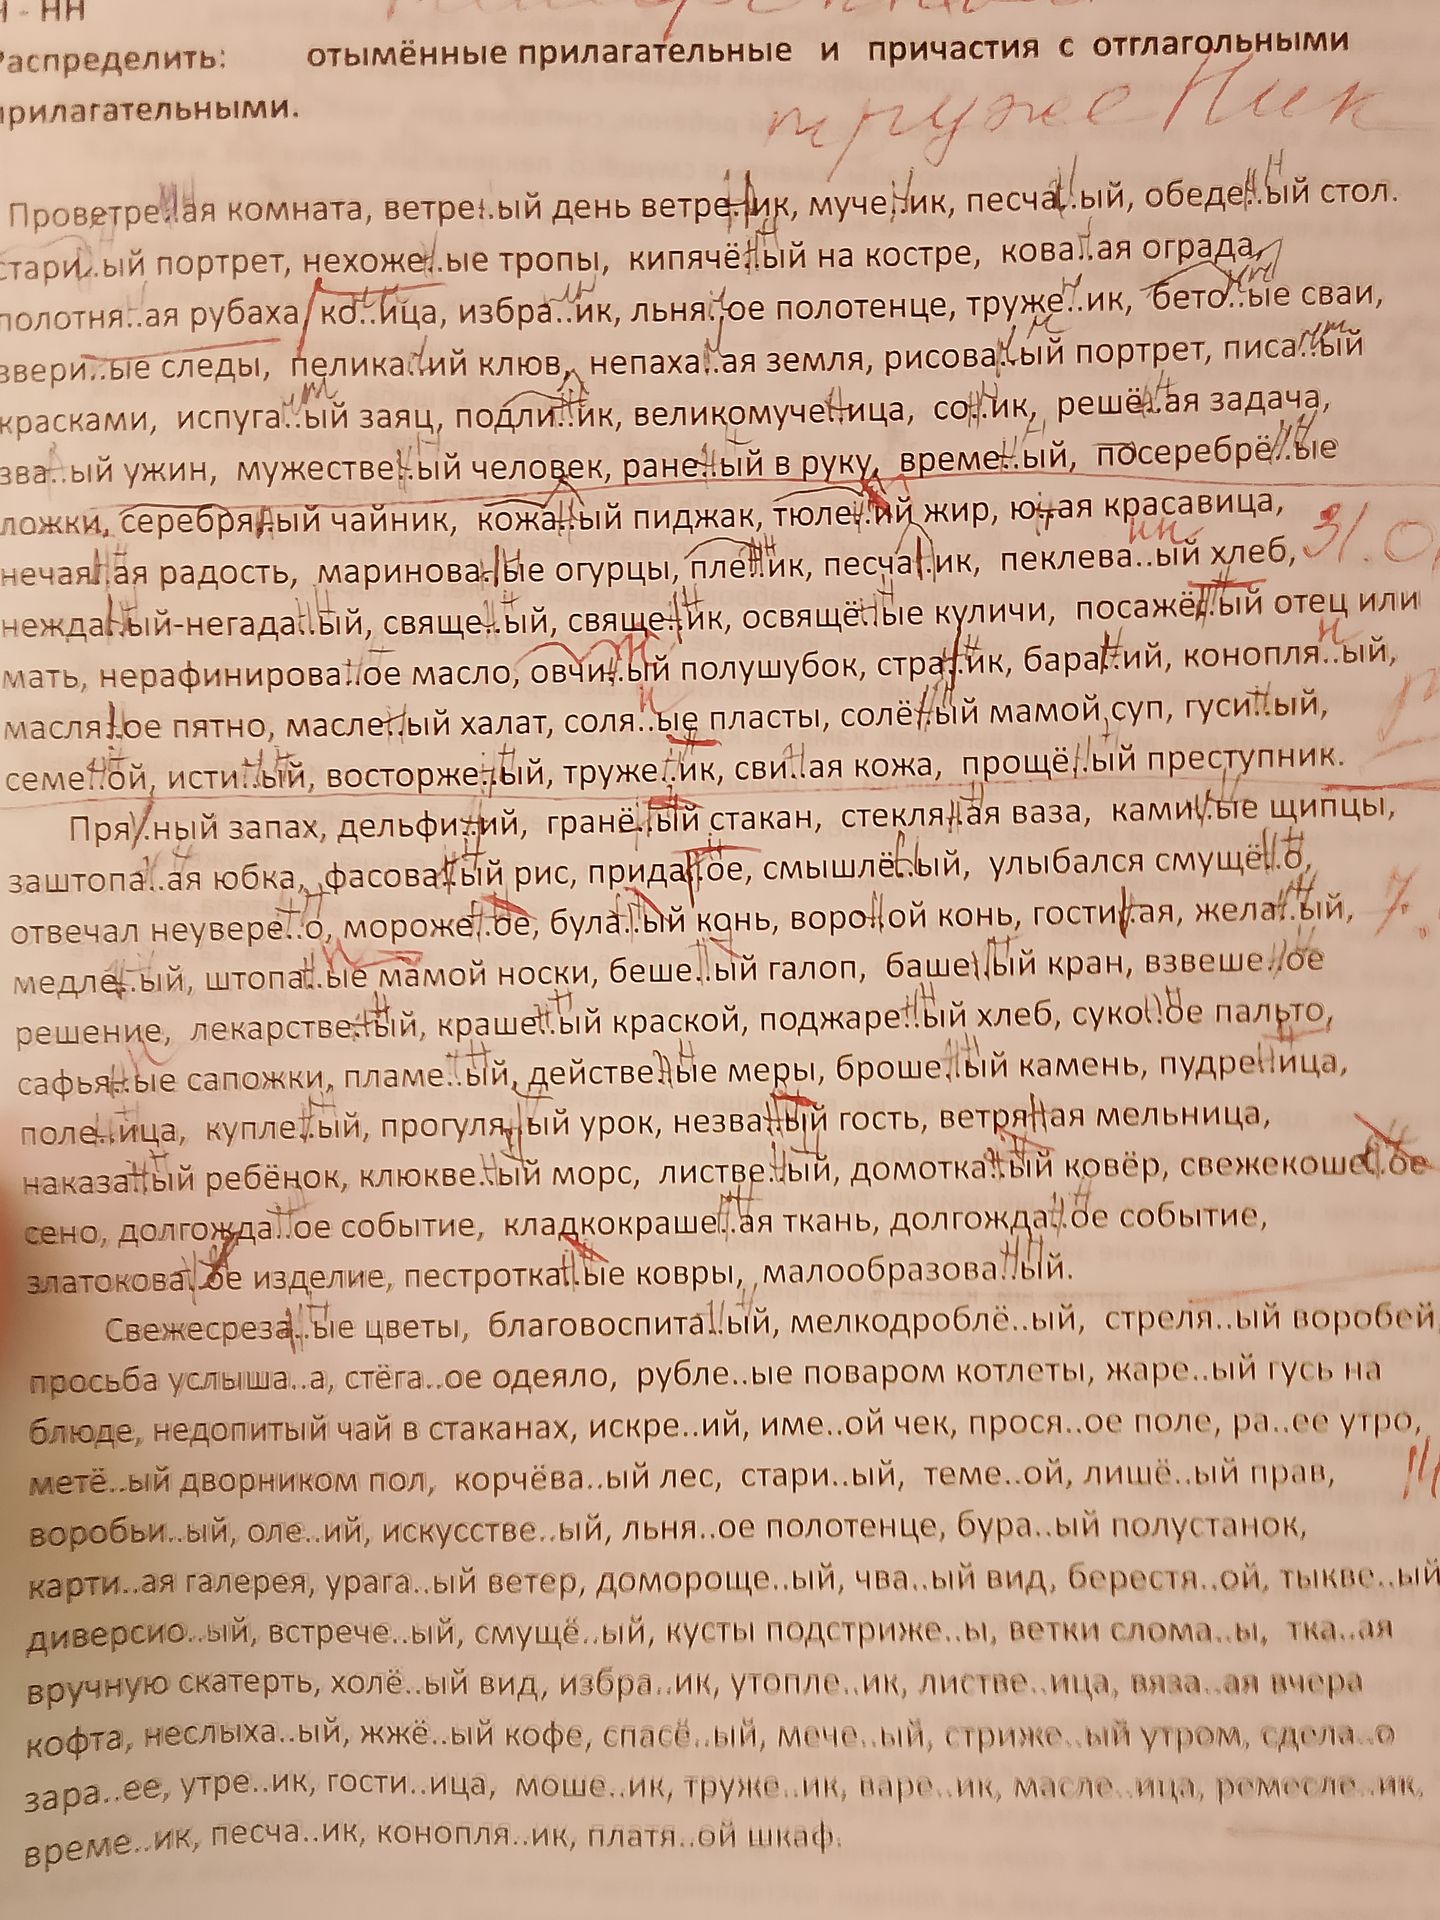 Н - НН
Распределить: отымённые прилагательные и причастия с отглагольными
прилагательными.
труженик
Проветре..ая комната, ветре..ый день ветре..ик, муче..ик, песча..ый, обеде..ый стол.
стари..ый портрет, нехоже..ые тропы, кипячё..ый на костре, кова..ая ограда,
полотня..ая рубаха, ко..ица, избра..ик, льня..ое полотенце, труже..ик, бето..ые сваи,
звери..ые следы, пелика..ий клюв, непаха..ая земля, рисова..ый портрет, писа..ый
красками, испуга..ый заяц, подли..ик, великомуче..ица, со..ик, решё..ая задача,
зва..ый ужин, мужестве..ый человек, ране..ый в руку, време..ый, посеребрё..ые
ложки, серебря..ый чайник, кожа..ый пиджак, тюле..ий жир, ю..ая красавица,
нечая..ая радость, маринова..ые огурцы, пле..ик, песча..ик, пеклева..ый хлеб, 31.0
нежда..ый-негада..ый, свяще..ый, свяще..ик, освящё..ые куличи, посажё..ый отец или
мать, нерафинирова..ое масло, овчи..ый полушубок, стра..ик, бара..ий, конопля..ый,
масля..ое пятно, масле..ый халат, соля..ые пласты, солё..ый мамой суп, гуси..ый,
семе..ой, исти..ый, восторже..ый, труже..ик, сви..ая кожа, прощё..ый преступник.
Пря..ный запах, дельфи..ий, гранё..ый стакан, стекля..ая ваза, ками..ые щипцы,
заштопа..ая юбка, фасова..ый рис, прида..ое, смышлё..ый, улыбался смущё..о,
отвечал неувере..о, мороже..ое, була..ый конь, воро..ой конь, гости..ая, жела..ый, 7.
медле..ый, штопа..ые мамой носки, беше..ый галоп, баше..ый кран, взвеше..ое
решение, лекарстве..ый, краше..ый краской, поджаре..ый хлеб, суко..ое пальто,
сафья..ые сапожки, пламе..ый, действе..ые меры, броше..ый камень, пудре..ица,
поле..ица, купле..ый, прогуля..ый урок, незва..ый гость, ветря..ая мельница,
наказа..ый ребёнок, клюкве..ый морс, листве..ый, домотка..ый ковёр, свежекоше..ое
сено, долгожда..ое событие, кладкокраше..ая ткань, долгожда..ое событие,
златокова..ое изделие, пестротка..ые ковры, малообразова..ый.
Свежесреза..ые цветы, благовоспита..ый, мелкодроблё..ый, стреля..ый воробей,
просьба услыша..а, стёга..ое одеяло, рубле..ые поваром котлеты, жаре..ый гусь на
блюде, недопитый чай в стаканах, искре..ий, име..ой чек, прося..ое поле, ра..ее утро,
метё..ый дворником пол, корчёва..ый лес, стари..ый, теме..ой, лишё..ый прав, 14
воробьи..ый, оле..ий, искусстве..ый, льня..ое полотенце, бура..ый полустанок,
карти..ая галерея, урага..ый ветер, доморoще..ый, чва..ый вид, берестя..ой, тыкве..ый
диверсио..ый, встрече..ый, смущё..ый, кусты подстриже..ы, ветки слома..ы, тка..ая
вручную скатерть, холё..ый вид, избра..ик, утопле..ик, листве..ица, вяза..ая вчера
кофта, неслыха..ый, жжё..ый кофе, спасё..ый, мече..ый, стриже..ый утром, сдела..о
зара..ее, утре..ик, гости..ица, моше..ик, труже..ик, варе..ик, масле..ица, ремесле..ик,
време..ик, песча..ик, конопля..ик, платя..ой шкаф.